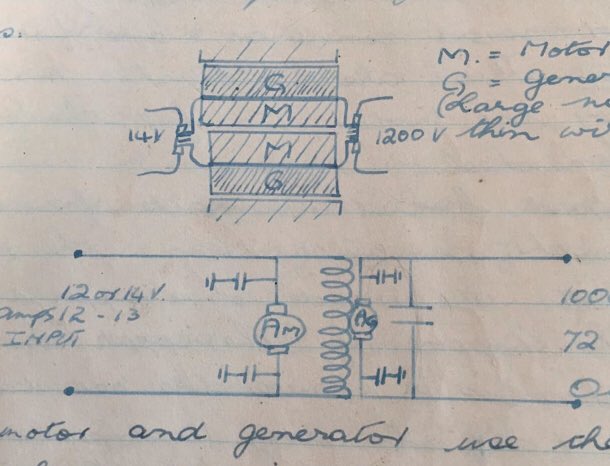 M. = Motor
G = gener
(Large n
thin wi
G
M
14V
1200V
M
G
12 or 14V.
amps 12 - 13
INPUT
AM
AG
100
72
0
motor and generator use the